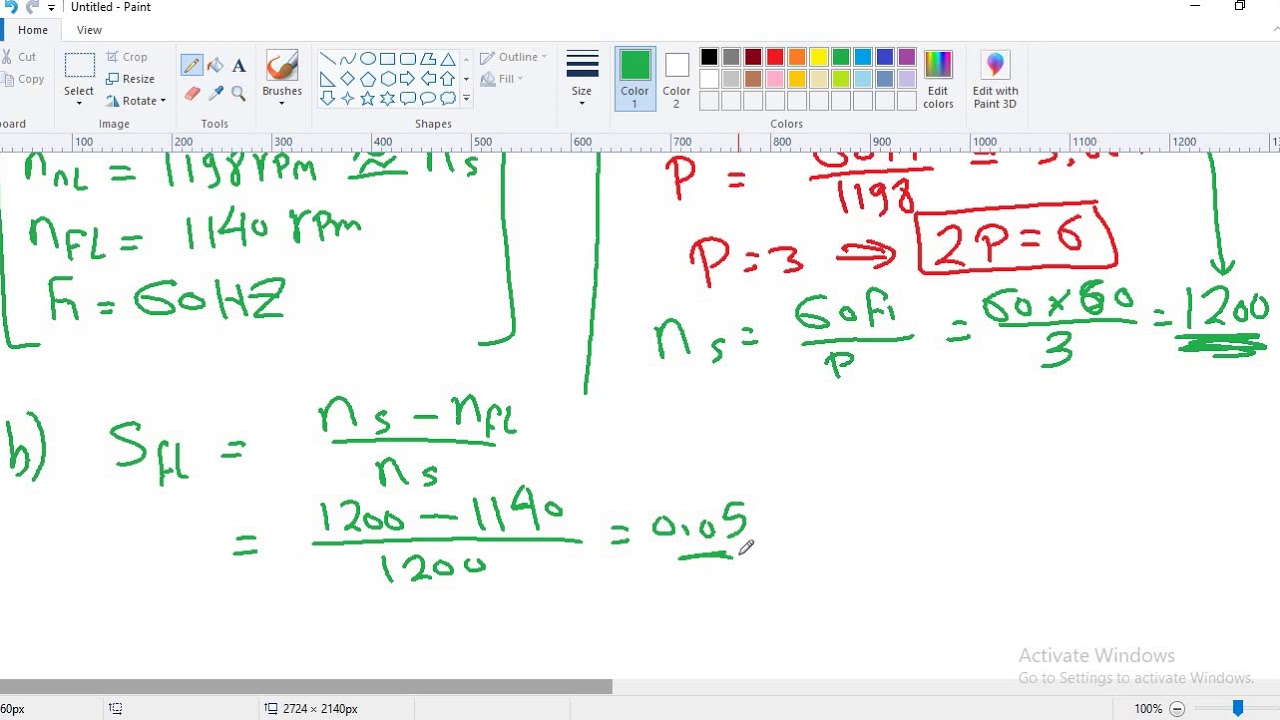 Untitled - Paint
Home View
Cut
Copy
Select
Crop
Resize
Rotate
Brushes
Outline
Fill
Size
Color 1
Color 2
Edit colors
Edit with Paint 3D
board
Image
Tools
Shapes
Colors
100 200 300 400 500 600 700 800 900 1000 1100 1200
n_nL = 1198 rpm ≈ n_s
n_FL = 1140 rpm
F1 = 60 HZ
P = 60F1 / 1198
P = 3 ⇒ 2P = 6
n_s = 60F1 / P = 60 × 60 / 3 = 1200
b) S_FL = n_s - n_FL / n_s
= 1200 - 1140 / 1200 = 0.05
Activate Windows
Go to Settings to activate Windows.
60px
2724 × 2140px
100%